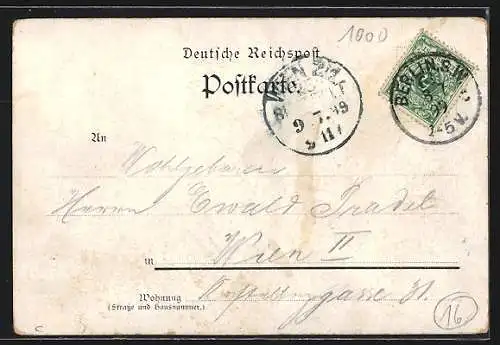 1000
Deutsche Reichspost
Postkarte.
WIEN 2/1
9 7.99
BERLIN S.W.
4-5 V.
An
Wohlgeboren
Herrn Ewald Pradel
in Wien II
Wohnung gasse 31.
(Straße und Hausnummer.)
16
c